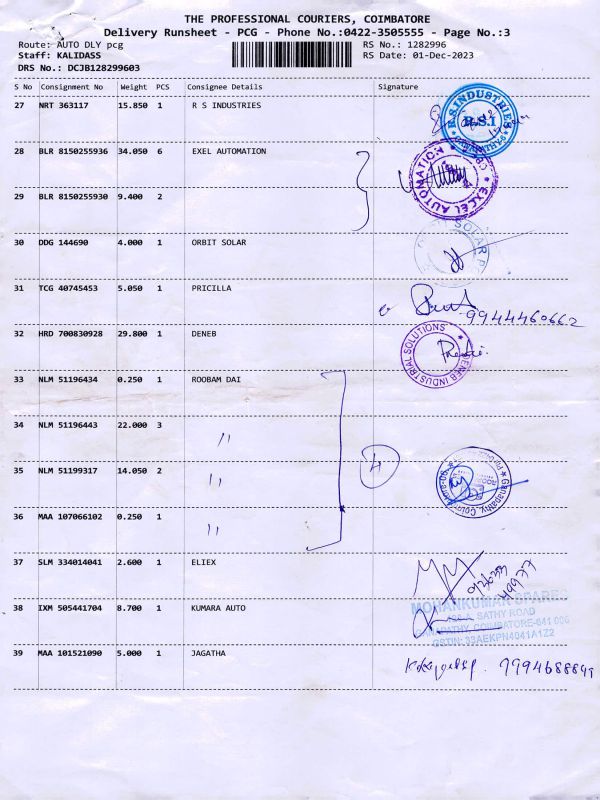 THE PROFESSIONAL COURIERS, COIMBATORE
Delivery Runsheet - PCG - Phone No.:0422-3505555 - Page No.:3
Route: AUTO DLY pcg RS No.: 1282996
Staff: KALIDASS RS Date: 01-Dec-2023
DRS No.: DCJB128299603
S No Consignment No Weight PCS Consignee Details Signature
27 NRT 363117 15.850 1 R S INDUSTRIES
R.S.INDUSTRIES
R.S.I
28 BLR 8150255936 34.050 6 EXEL AUTOMATION
EXCEL AUTOMATION
29 BLR 8150255930 9.400 2
30 DDG 144690 4.000 1 ORBIT SOLAR
SOLAR
31 TCG 40745453 5.050 1 PRICILLA
9944460662
32 HRD 700830928 29.800 1 DENEB
DENEB INDUSTRIAL SOLUTIONS
33 NLM 51196434 0.250 1 ROOBAM DAI
34 NLM 51196443 22.000 3 "
4
35 NLM 51199317 14.050 2 "
Ganapathy, Coim
36 MAA 107066102 0.250 1 "
37 SLM 334014041 2.600 1 ELIEX
38 IXM 505441704 8.700 1 KUMARA AUTO
MOHANKUMAR SPARES
SATHY ROAD
GANAPATHY, COIMBATORE-641 006
GSTIN: 33AEKPN4041A1Z2
39 MAA 101521090 5.000 1 JAGATHA
9994688849